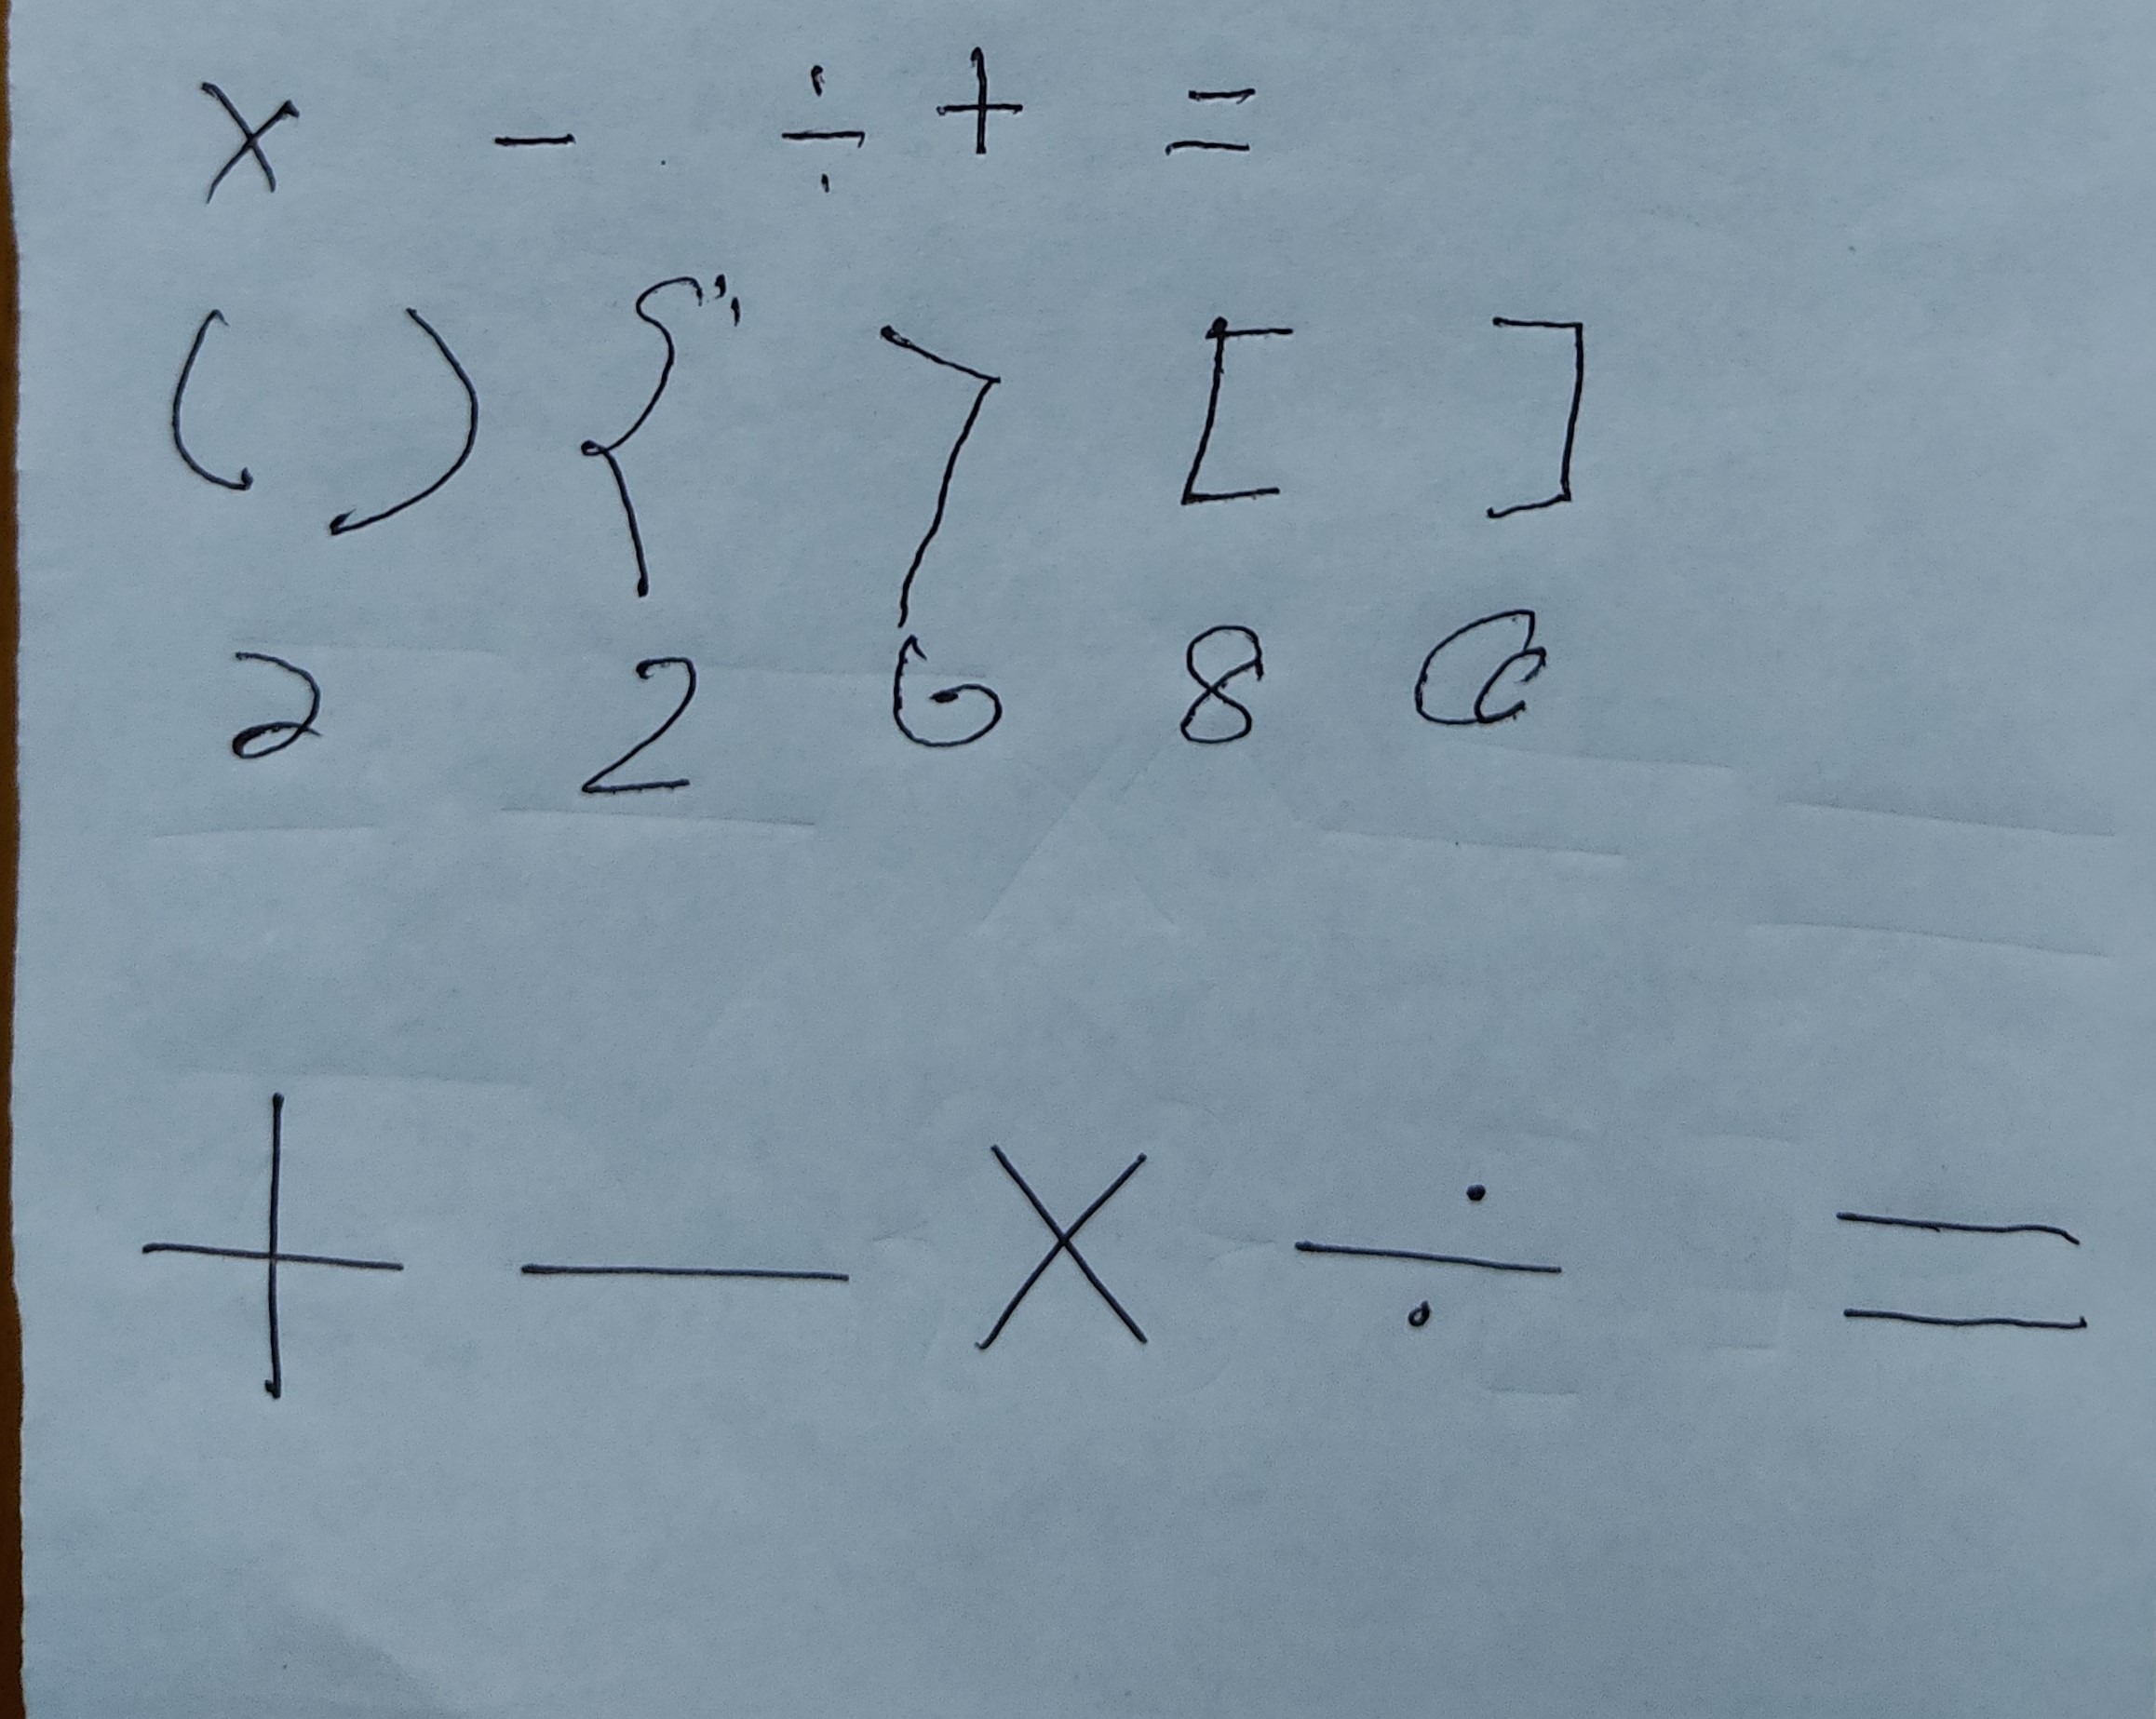 × - ÷ + =
( ) { } [ ]
2 2 6 8
+ - × ÷ =